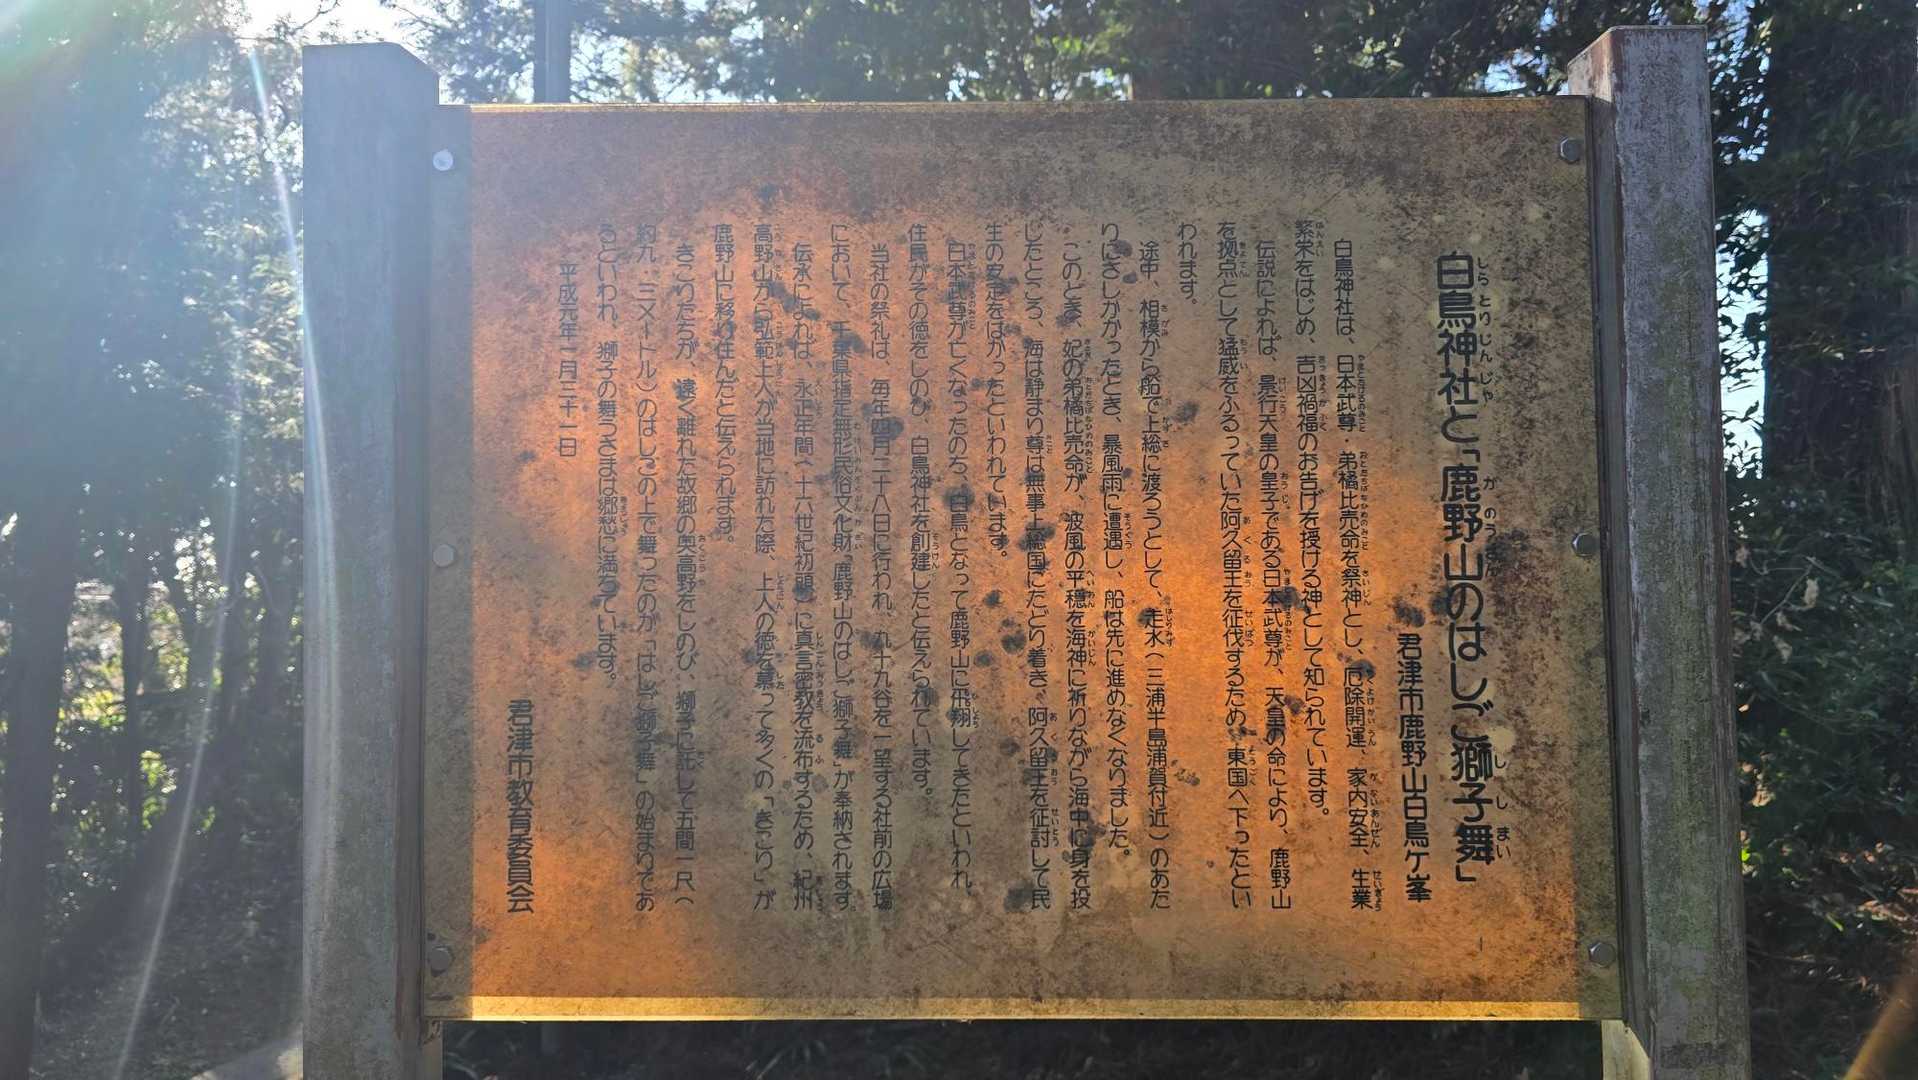 白鳥神社と「鹿野山のはしご獅子舞」
君津市鹿野山白鳥ケ峯
白鳥神社は、日本武尊・弟橘比売命を祭神とし、厄除開運、家内安全、生業
繁栄をはじめ、吉凶禍福のお告げを授ける神として知られています。
伝説によれば、景行天皇の皇子である日本武尊が、天皇の命により、鹿野山
を拠点として猛威をふるっていた阿久留王を征伐するため、東国へ下ったとい
われます。
途中、相模から船で上総に渡ろうとして、走水（三浦半島浦賀付近）のあた
りにさしかかったとき、暴風雨に遭遇し、船は先に進めなくなりました。
このとき、妃の弟橘比売命が、波風の平穏を海神に祈りながら海中に身を投
じたところ、海は静まり尊は無事上総国にたどり着き、阿久留王を征討して民
生の安定をはかったといわれています。
日本武尊が亡くなったのち、白鳥となって鹿野山に飛翔してきたといわれ、
住民がその徳をしのび、白鳥神社を創建したと伝えられています。
当社の祭礼は、毎年四月二十八日に行われ、九十九谷を一望する社前の広場
において、千葉県指定無形民俗文化財「鹿野山のはしご獅子舞」が奉納されます。
伝承によれば、永正年間（十六世紀初頭）に真言密教を流布するため、紀州
高野山から弘範上人が当地に訪れた際、上人の徳を慕って多くの「きこり」が
鹿野山に移り住んだと伝えられます。
きこりたちが、遠く離れた故郷の奥高野をしのび、獅子に託して五間一尺（
約九．三メートル）のはしごの上で舞ったのが「はしご獅子舞」の始まりであ
るといわれ、獅子の舞うさまは郷愁に満ちています。
平成元年一月三十一日
君津市教育委員会